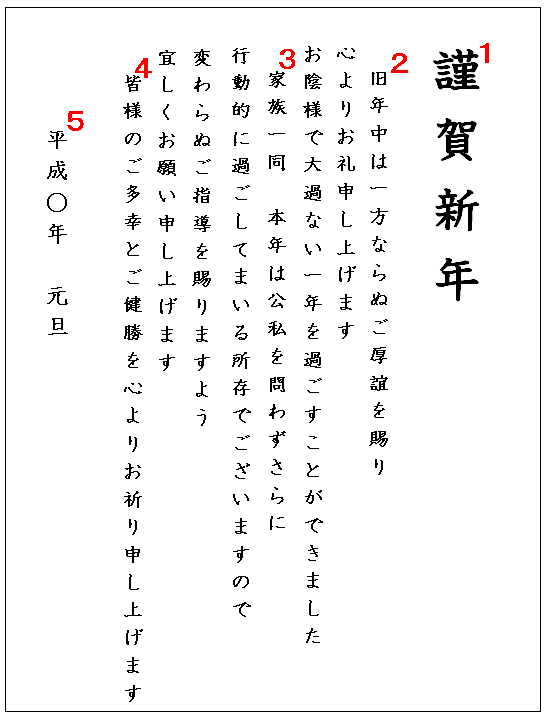 1
謹賀新年
2
旧年中は一方ならぬご厚誼を賜り
心よりお礼申し上げます
お陰様で大過ない一年を過ごすことができました
3
家族一同　本年は公私を問わずさらに
行動的に過ごしてまいる所存でございますので
変わらぬご指導を賜りますよう
宜しくお願い申し上げます
4
皆様のご多幸とご健勝を心よりお祈り申し上げます
5
平成〇年　元旦